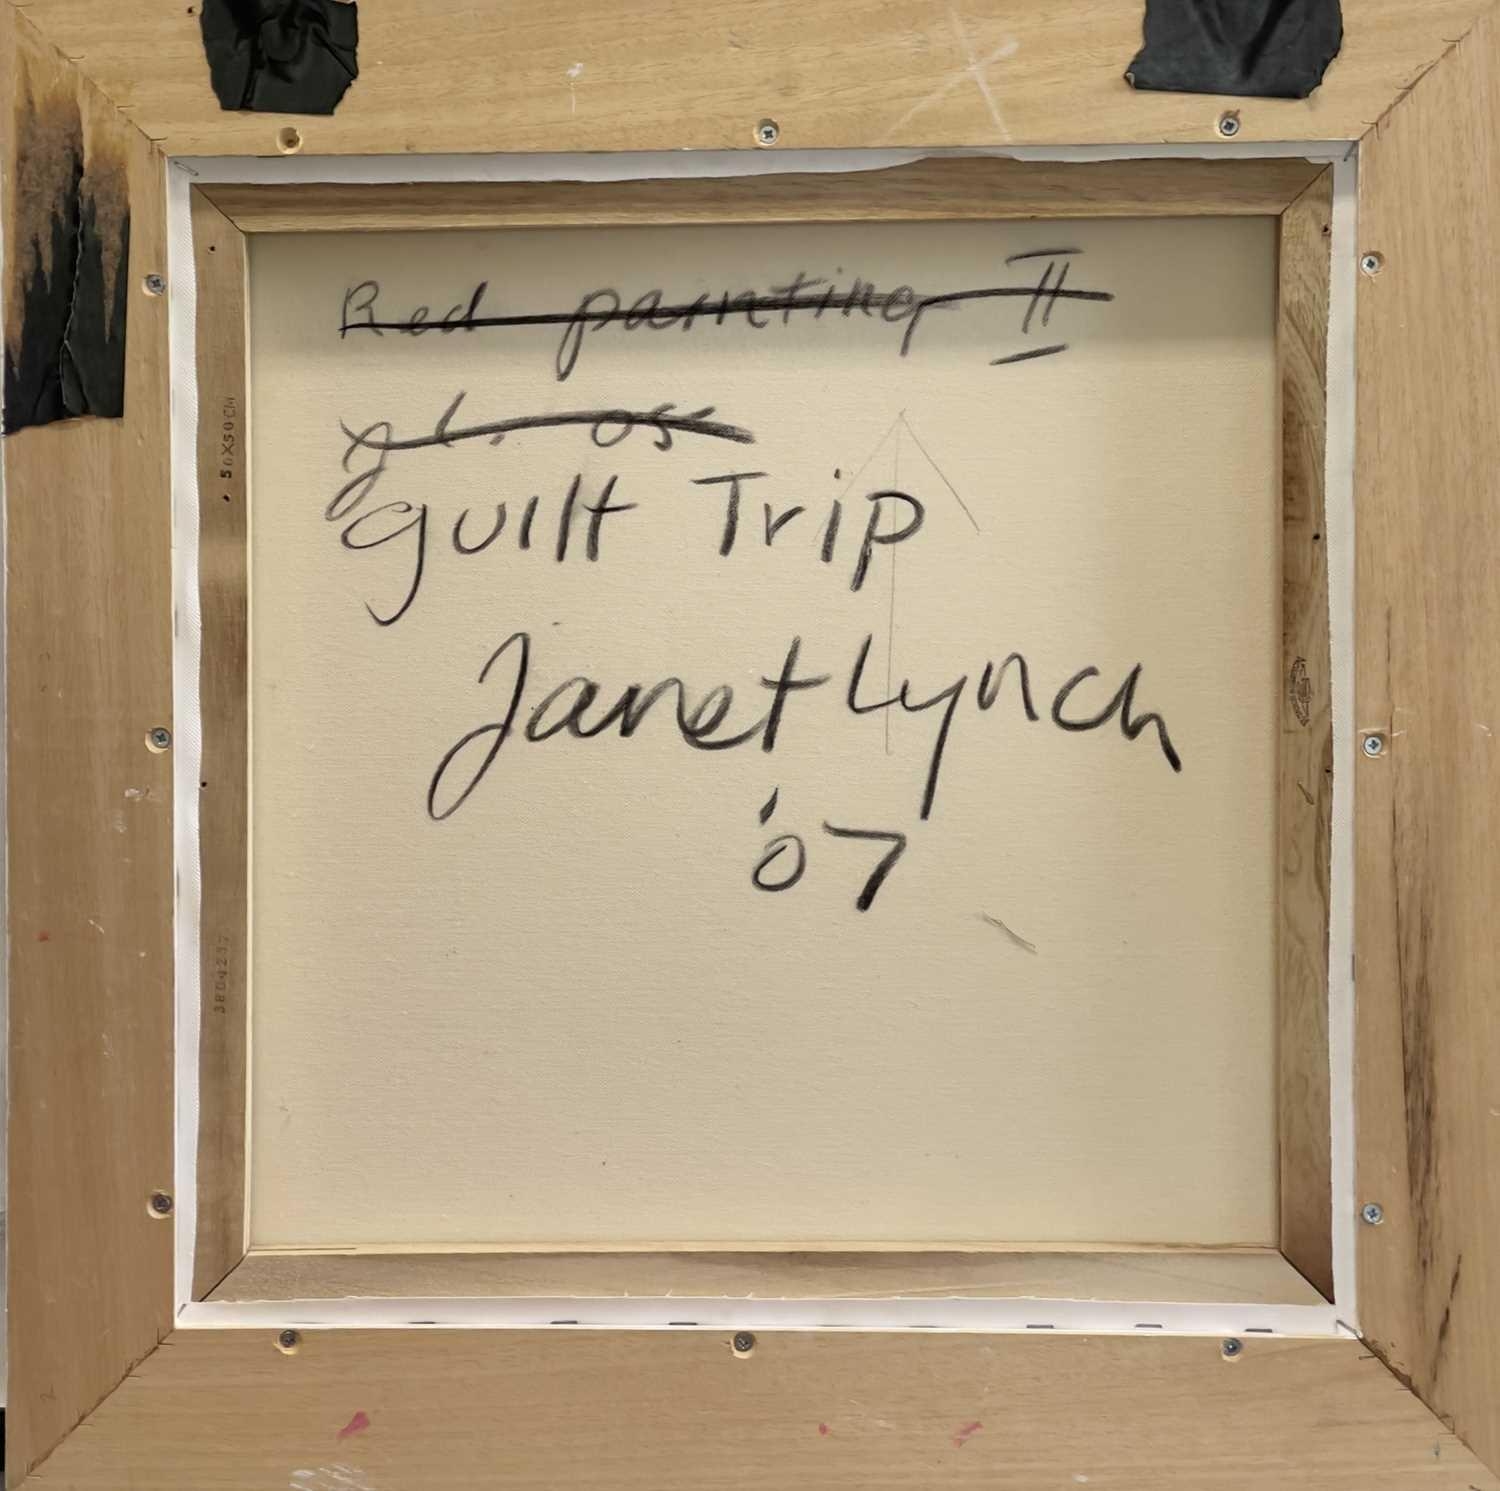 Red painting II
guilt Trip
Janet Lynch
'07
50X50CM
3804237